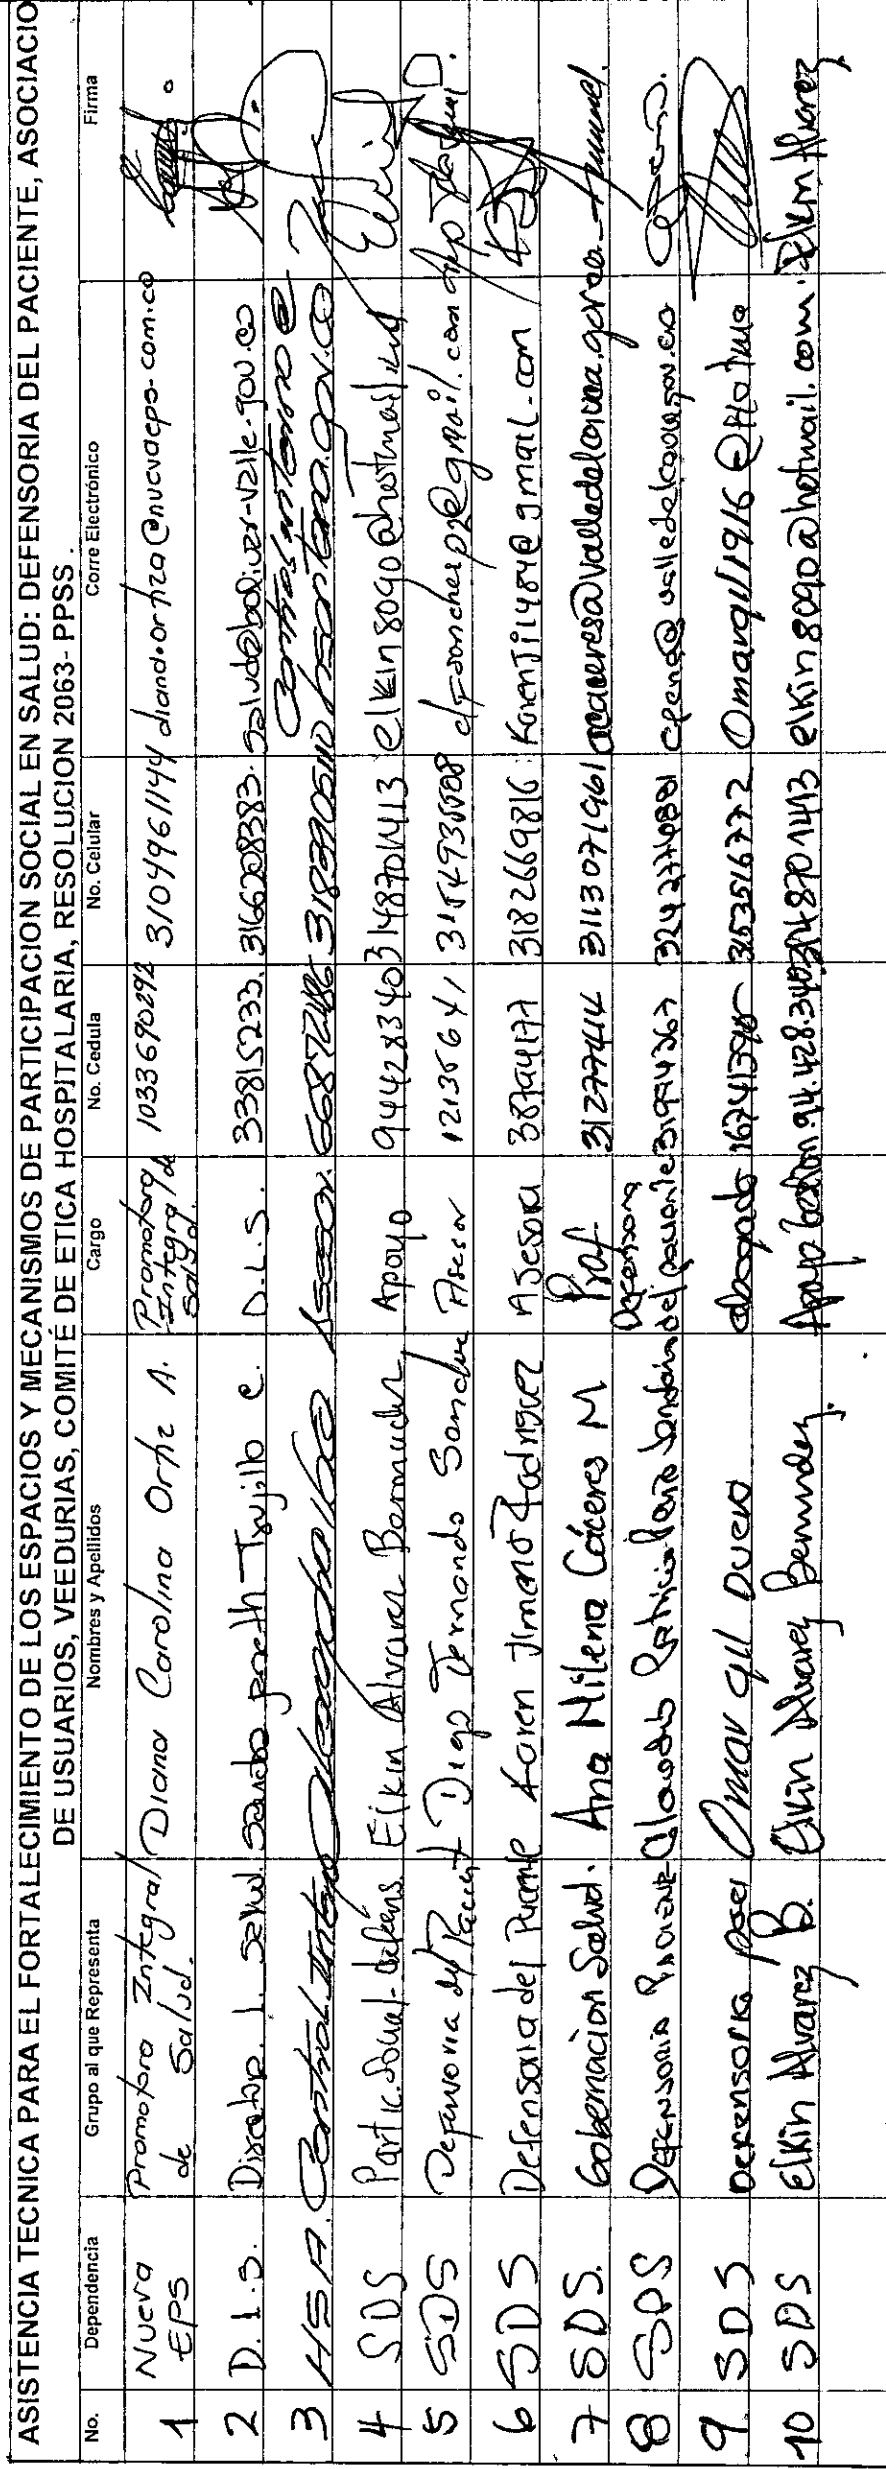 ASISTENCIA TECNICA PARA EL FORTALECIMIENTO DE LOS ESPACIOS Y MECANISMOS DE PARTICIPACION SOCIAL EN SALUD: DEFENSORIA DEL PACIENTE, ASOCIACIO
DE USUARIOS, VEEDURIAS, COMITÉ DE ETICA HOSPITALARIA, RESOLUCION 2063- PPSS .
No. Dependencia Grupo al que Representa Nombres y Apellidos Cargo No. Cedula No. Celular Corre Electrónico Firma
1 Nueva EPS Promotora Integral de Salud. Diana Carolina Ortiz A. Promotora Integral de Salud. 1033690292 3104961144 diand.ortiza@nuevaeps.com.co
2 D.L.S. Director. L. Salud. Sandra Trujillo C. D.L.S. 33815233. 3166208383. salud@bolivar-valle.gov.co
3 HSA. Control Interno Asesor. 66872486 3183905110 Controlinterno@
4 SDS Partic. Social- Elkin Alvarez Bermudez Apoyo 94428340 3148701413 elkin8090@hotmail
5 SDS Defensoria del Pacient Diego Fernando Sanche Asesor 12135641 3154935508 dfsanchezp2@gmail.com
6 SDS Defensoria del Paciente Karen Jimeno Rodriguez Asesora 38794177 3182669816 Karenji1484@gmail.com
7 SDS. Gobernacion Salud. Ana Milena Cáceres M Prof. 31277414 3113071961 acaceres@valledelcauca.gov.co
8 SDS DEFENSORIA PACIENTE Claudia Patricia Defensora del paciente 31994367 3242776881 cpena@valledelcauca.gov.co
9. SDS Defensoria Omar Gil Duero abogado 16741395 3153516772 Omargil1916@Hotma
10 SDS Elkin Alvarez B. Elkin Alvarez Bermudez. Apoyo Gestion 94.428.340 3148701413 elkin8090@hotmail.com. Elkin Alvarez